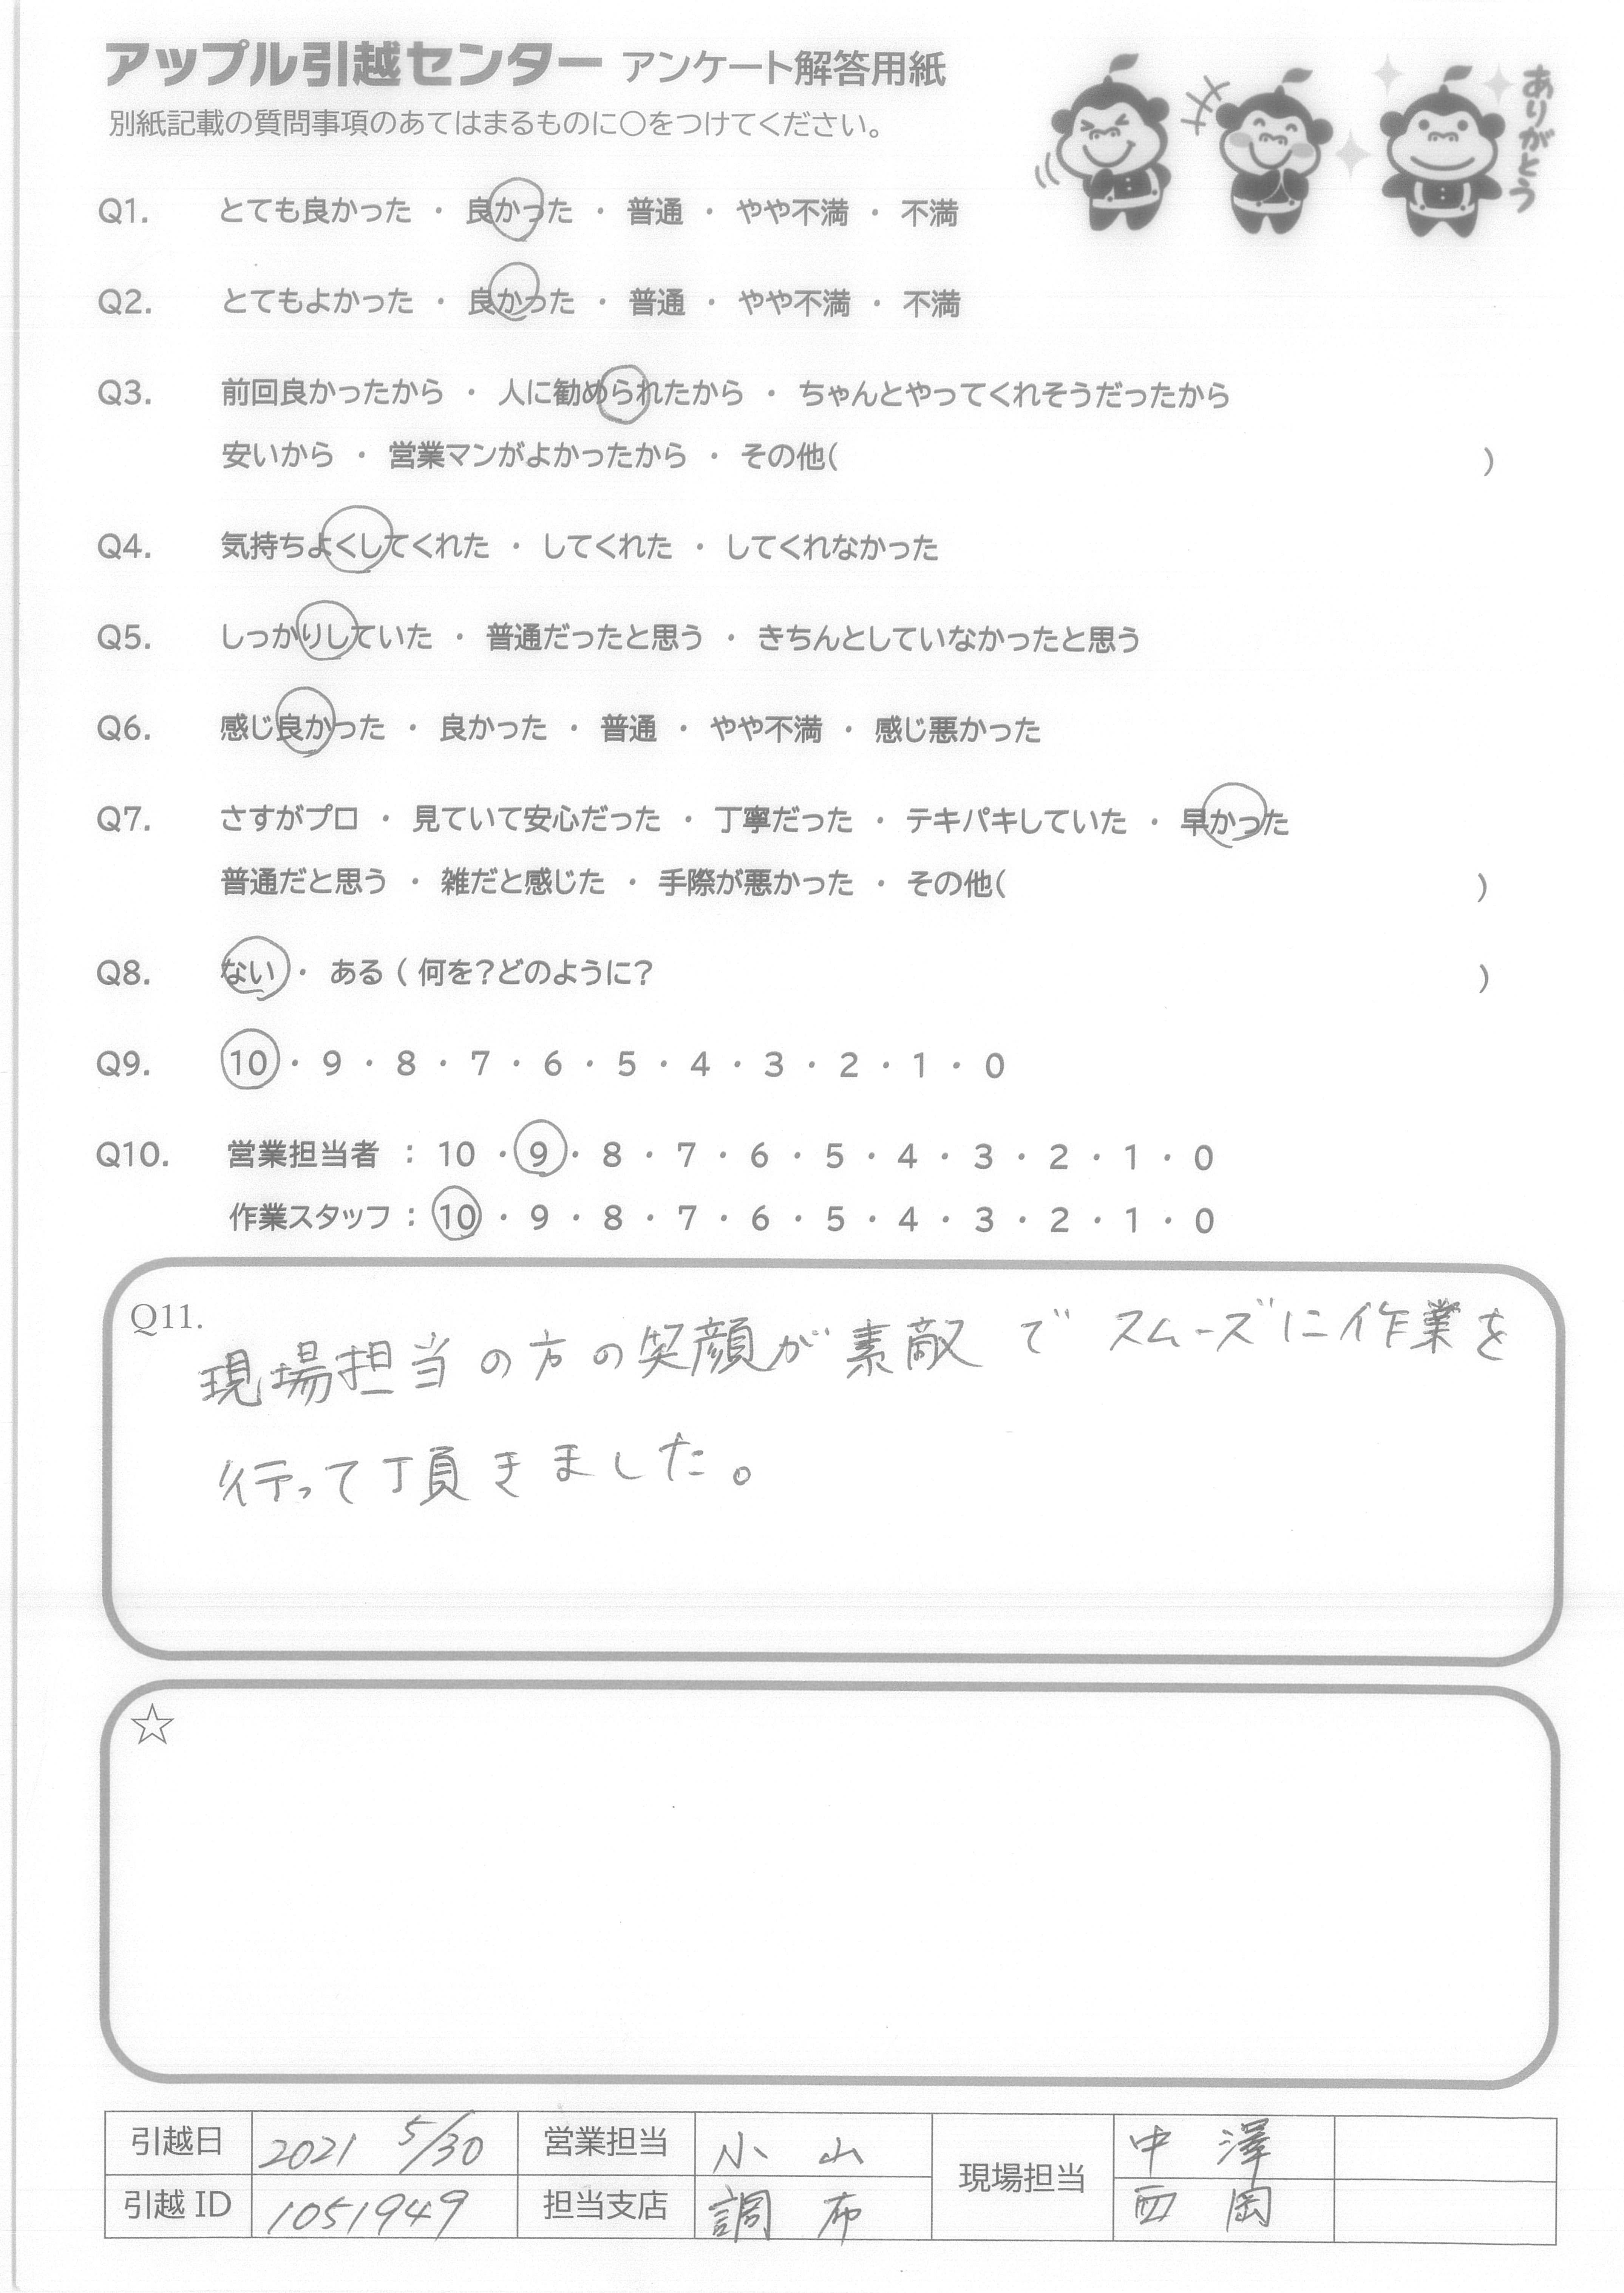 アップル引越センター アンケート解答用紙
別紙記載の質問事項のあてはまるものに○をつけてください。
ありがとう
Q1. とても良かった ・ 良かった ・ 普通 ・ やや不満 ・ 不満
Q2. とてもよかった ・ 良かった ・ 普通 ・ やや不満 ・ 不満
Q3. 前回良かったから ・ 人に勧められたから ・ ちゃんとやってくれそうだったから
安いから ・ 営業マンがよかったから ・ その他( )
Q4. 気持ちよくしてくれた ・ してくれた ・ してくれなかった
Q5. しっかりしていた ・ 普通だったと思う ・ きちんとしていなかったと思う
Q6. 感じ良かった ・ 良かった ・ 普通 ・ やや不満 ・ 感じ悪かった
Q7. さすがプロ ・ 見ていて安心だった ・ 丁寧だった ・ テキパキしていた ・ 早かった
普通だと思う ・ 雑だと感じた ・ 手際が悪かった ・ その他( )
Q8. ない ・ ある ( 何を?どのように? )
Q9. 10 ・ 9 ・ 8 ・ 7 ・ 6 ・ 5 ・ 4 ・ 3 ・ 2 ・ 1 ・ 0
Q10. 営業担当者 : 10 ・ 9 ・ 8 ・ 7 ・ 6 ・ 5 ・ 4 ・ 3 ・ 2 ・ 1 ・ 0
作業スタッフ : 10 ・ 9 ・ 8 ・ 7 ・ 6 ・ 5 ・ 4 ・ 3 ・ 2 ・ 1 ・ 0
Q11.
現場担当の方の笑顔が素敵でスムーズに作業を
行って頂きました。
☆
引越日 2021 5/30 営業担当 小山 現場担当 中澤
引越ID 1051949 担当支店 調布 西岡